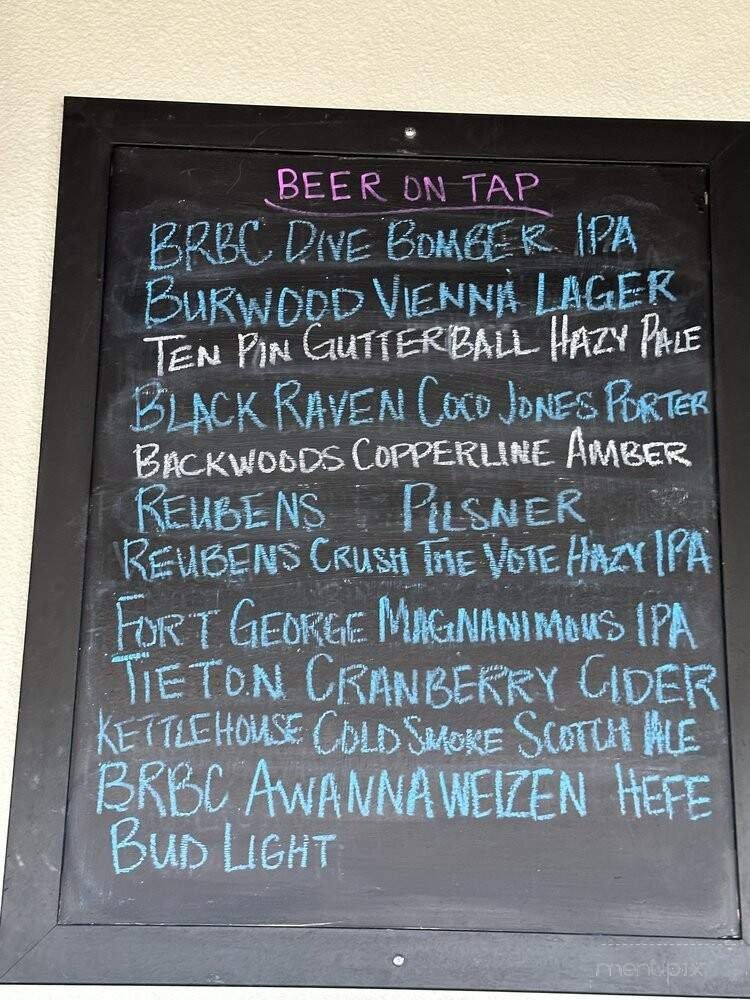 BEER ON TAP
BRBC DIVE BOMBER IPA
BURWOOD VIENNA LAGER
TEN PIN GUTTERBALL HAZY PALE
BLACK RAVEN COCO JONES PORTER
BACKWOODS COPPERLINE AMBER
REUBENS PILSNER
REUBENS CRUSH THE VOTE HAZY IPA
FORT GEORGE MAGNANIMOUS IPA
TIETON CRANBERRY CIDER
KETTLEHOUSE COLD SMOKE SCOTCH ALE
BRBC AWANNAWEIZEN HEFE
BUD LIGHT
menupix